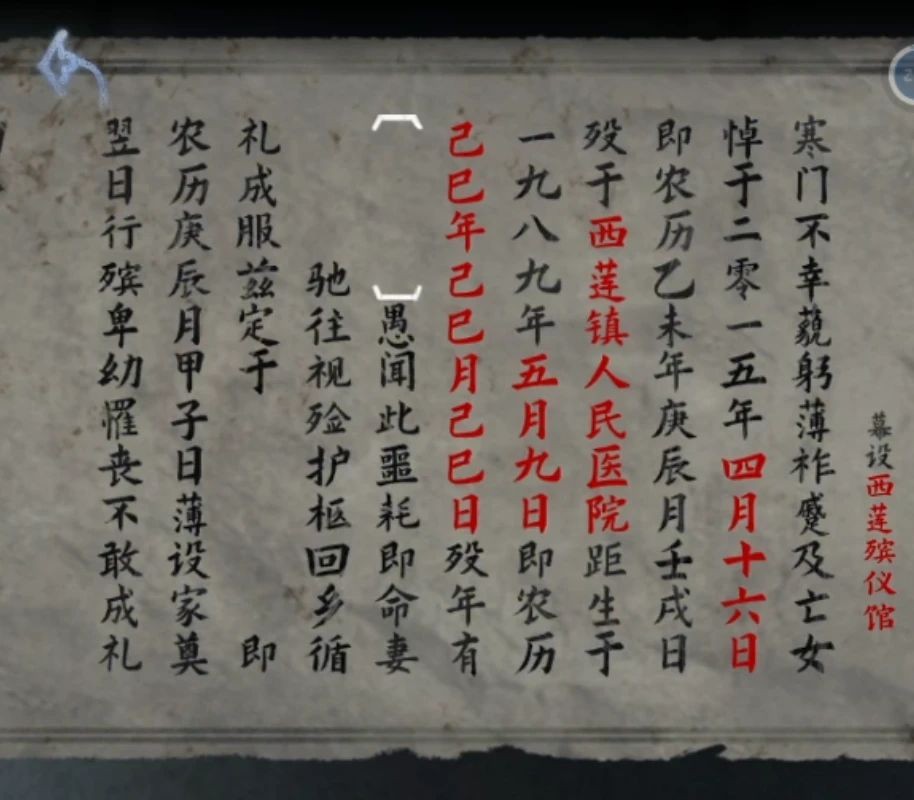 幕设西莲殡仪馆
寒门不幸藐躬薄祚蹙及亡女
悼于二零一五年四月十六日
即农历乙未年庚辰月壬戌日
殁于西莲镇人民医院距生于
一九八九年五月九日即农历
己巳年己巳月己巳日殁年有
愚闻此噩耗即命妻
驰往视殓护柩回乡循
礼成服兹定于 即
农历庚辰月甲子日薄设家奠
翌日行殡卑幼罹丧不敢成礼